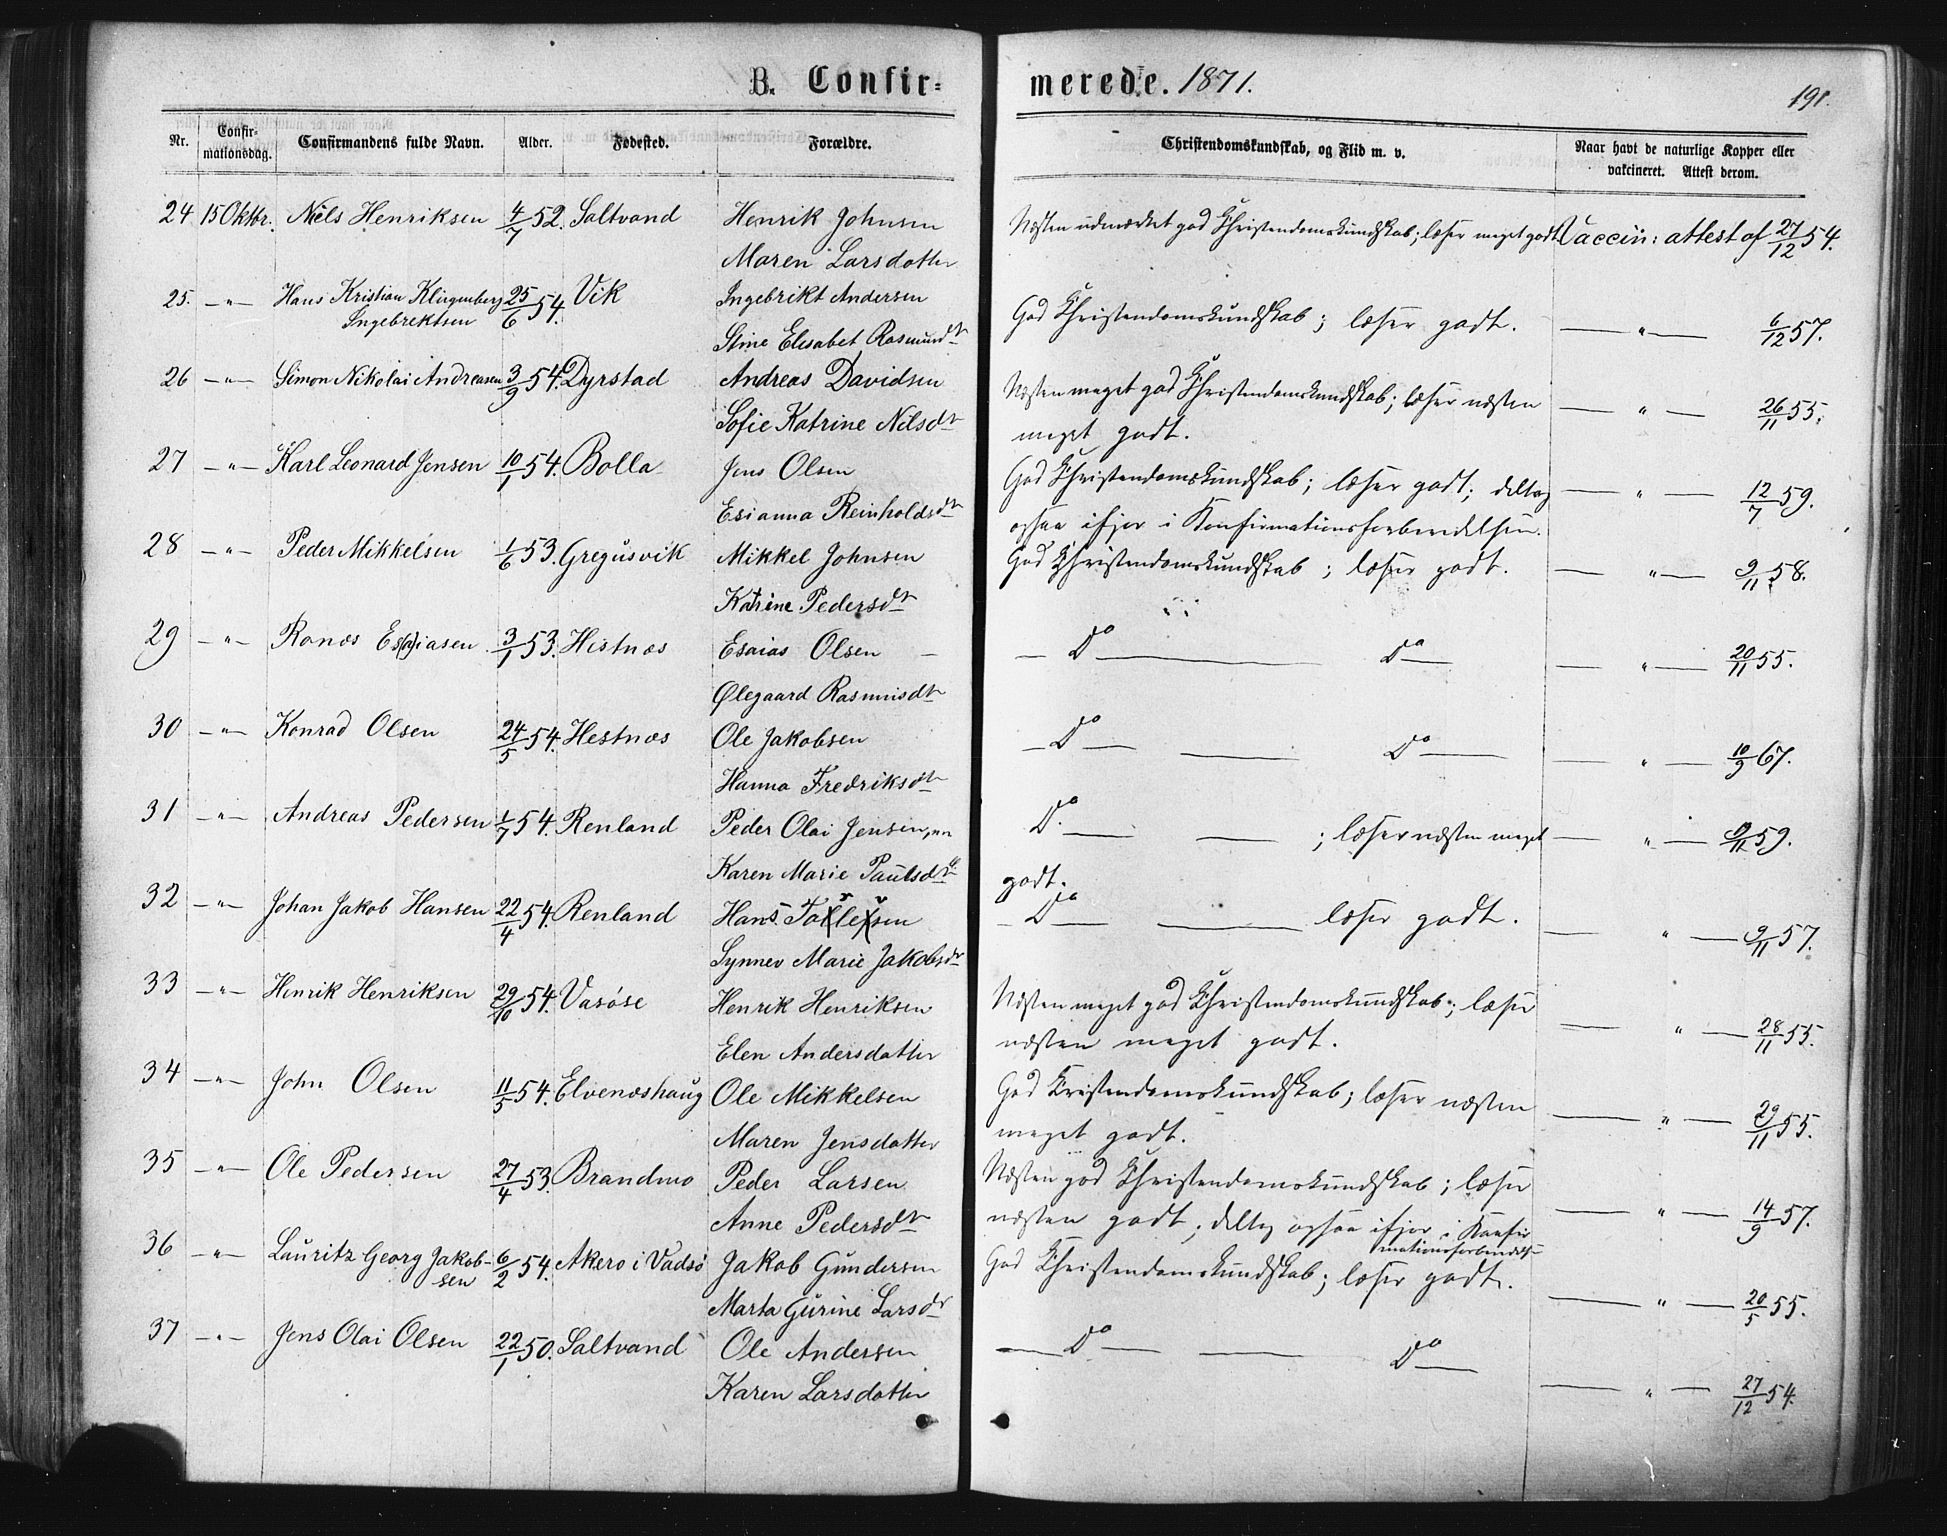 B. Confir=
merede. 1871.
191.
Nr. Confir=mationsdag. Confirmandens fulde Navn. Alder. Fødested. Forældre. Christendomskundskab, og Flid m. v. Naar havt de naturlige Kopper eller vakcineret. Attest derom.
24 15 Oktbr. Niels Henriksen 4/7 52. Saltvand Henrik Johnsen Næsten udmærket god Christendomskundskab; læser meget godt Vaccin: attest af 27/12 54.
Maren Larsdatter
25. —"— Hans Kristian Klingenberg 25/6 54. Vik Ingebrikt Andersen God Christendomskundskab; læser godt. — " — 6/12 57.
Ingebrektsen Stine Elisabet Rasmusdt
26 —"— Simon Nikolai Andreasen 3/9 54. Dyrstad Andreas Davidsen Næsten meget god Christendomskundskab; læser næsten — " — 26/11 55.
Sofie Katrine Nilsdt meget godt.
27 —"— Karl Leonard Jensen 10/1 54. Bolla Jens Olsen God Christendomskundskab; læser godt; deltog — " — 12/7 59.
Esianna Reinholdsdt ogsaa ifjor i Konfirmationsforberedelsen.
28 —"— Peder Mikkelsen 1/6 53. Gregusvik Mikkel Johnsen God Christendomskundskab; læser godt. — " — 9/11 58.
Katrine Pedersdt
29 —"— Ronæs Es(a)iasen 3/1 53. Hestnæs Esaias Olsen — Do — Do — — " — 20/11 55.
Ølegaard Rasmusdt
30 —"— Konrad Olsen 24/5 54. Hestnæs Ole Jakobsen — Do — — Do — — " — 10/9 67.
Hanna Fredriksdt
31 —"— Andreas Pedersen 1/7 54. Renland Peder Olai Jensen, Do. — — ; læser næsten meget — " — 9/11 59.
Karen Marie Paulsdt godt.
32 —"— Johan Jakob Hansen 22/4 54. Renland Hans — Do — — læser godt. — " — 9/11 57.
Synnev Marie Jakobsdr
33 —"— Henrik Henriksen 29/10 54. Vasøse Henrik Henriksen Næsten meget god Christendomskundskab; læser — " — 28/11 55.
Elen Andersdatter næsten meget godt.
34 —"— John Olsen 11/5 54. Elvenæshaug Ole Mikkelsen God Kristendomskundskab; læser næsten — " — 29/11 55.
Maren Jensdatter meget godt.
35 —"— Ole Pedersen 27/4 53. Brandmo Peder Larsen Næsten god Christendomskundskab; læser — " — 14/9 57.
Anne Pedersdt næsten godt; deltog ogsaa ifjor i Konfir
mationsforberedelse
36 —"— Lauritz Georg Jakob- 6/2 54. Akero i Vadsø Jakob Gundersen God Christendomskundskab; læser godt. — " — 20/5 55.
sen Marta Gurine Larsdr
37 —"— Jens Olai Olsen 22/1 50. Saltvand Ole Andersen — Do — — Do — — " — 27/12 54.
Karen Larsdatter